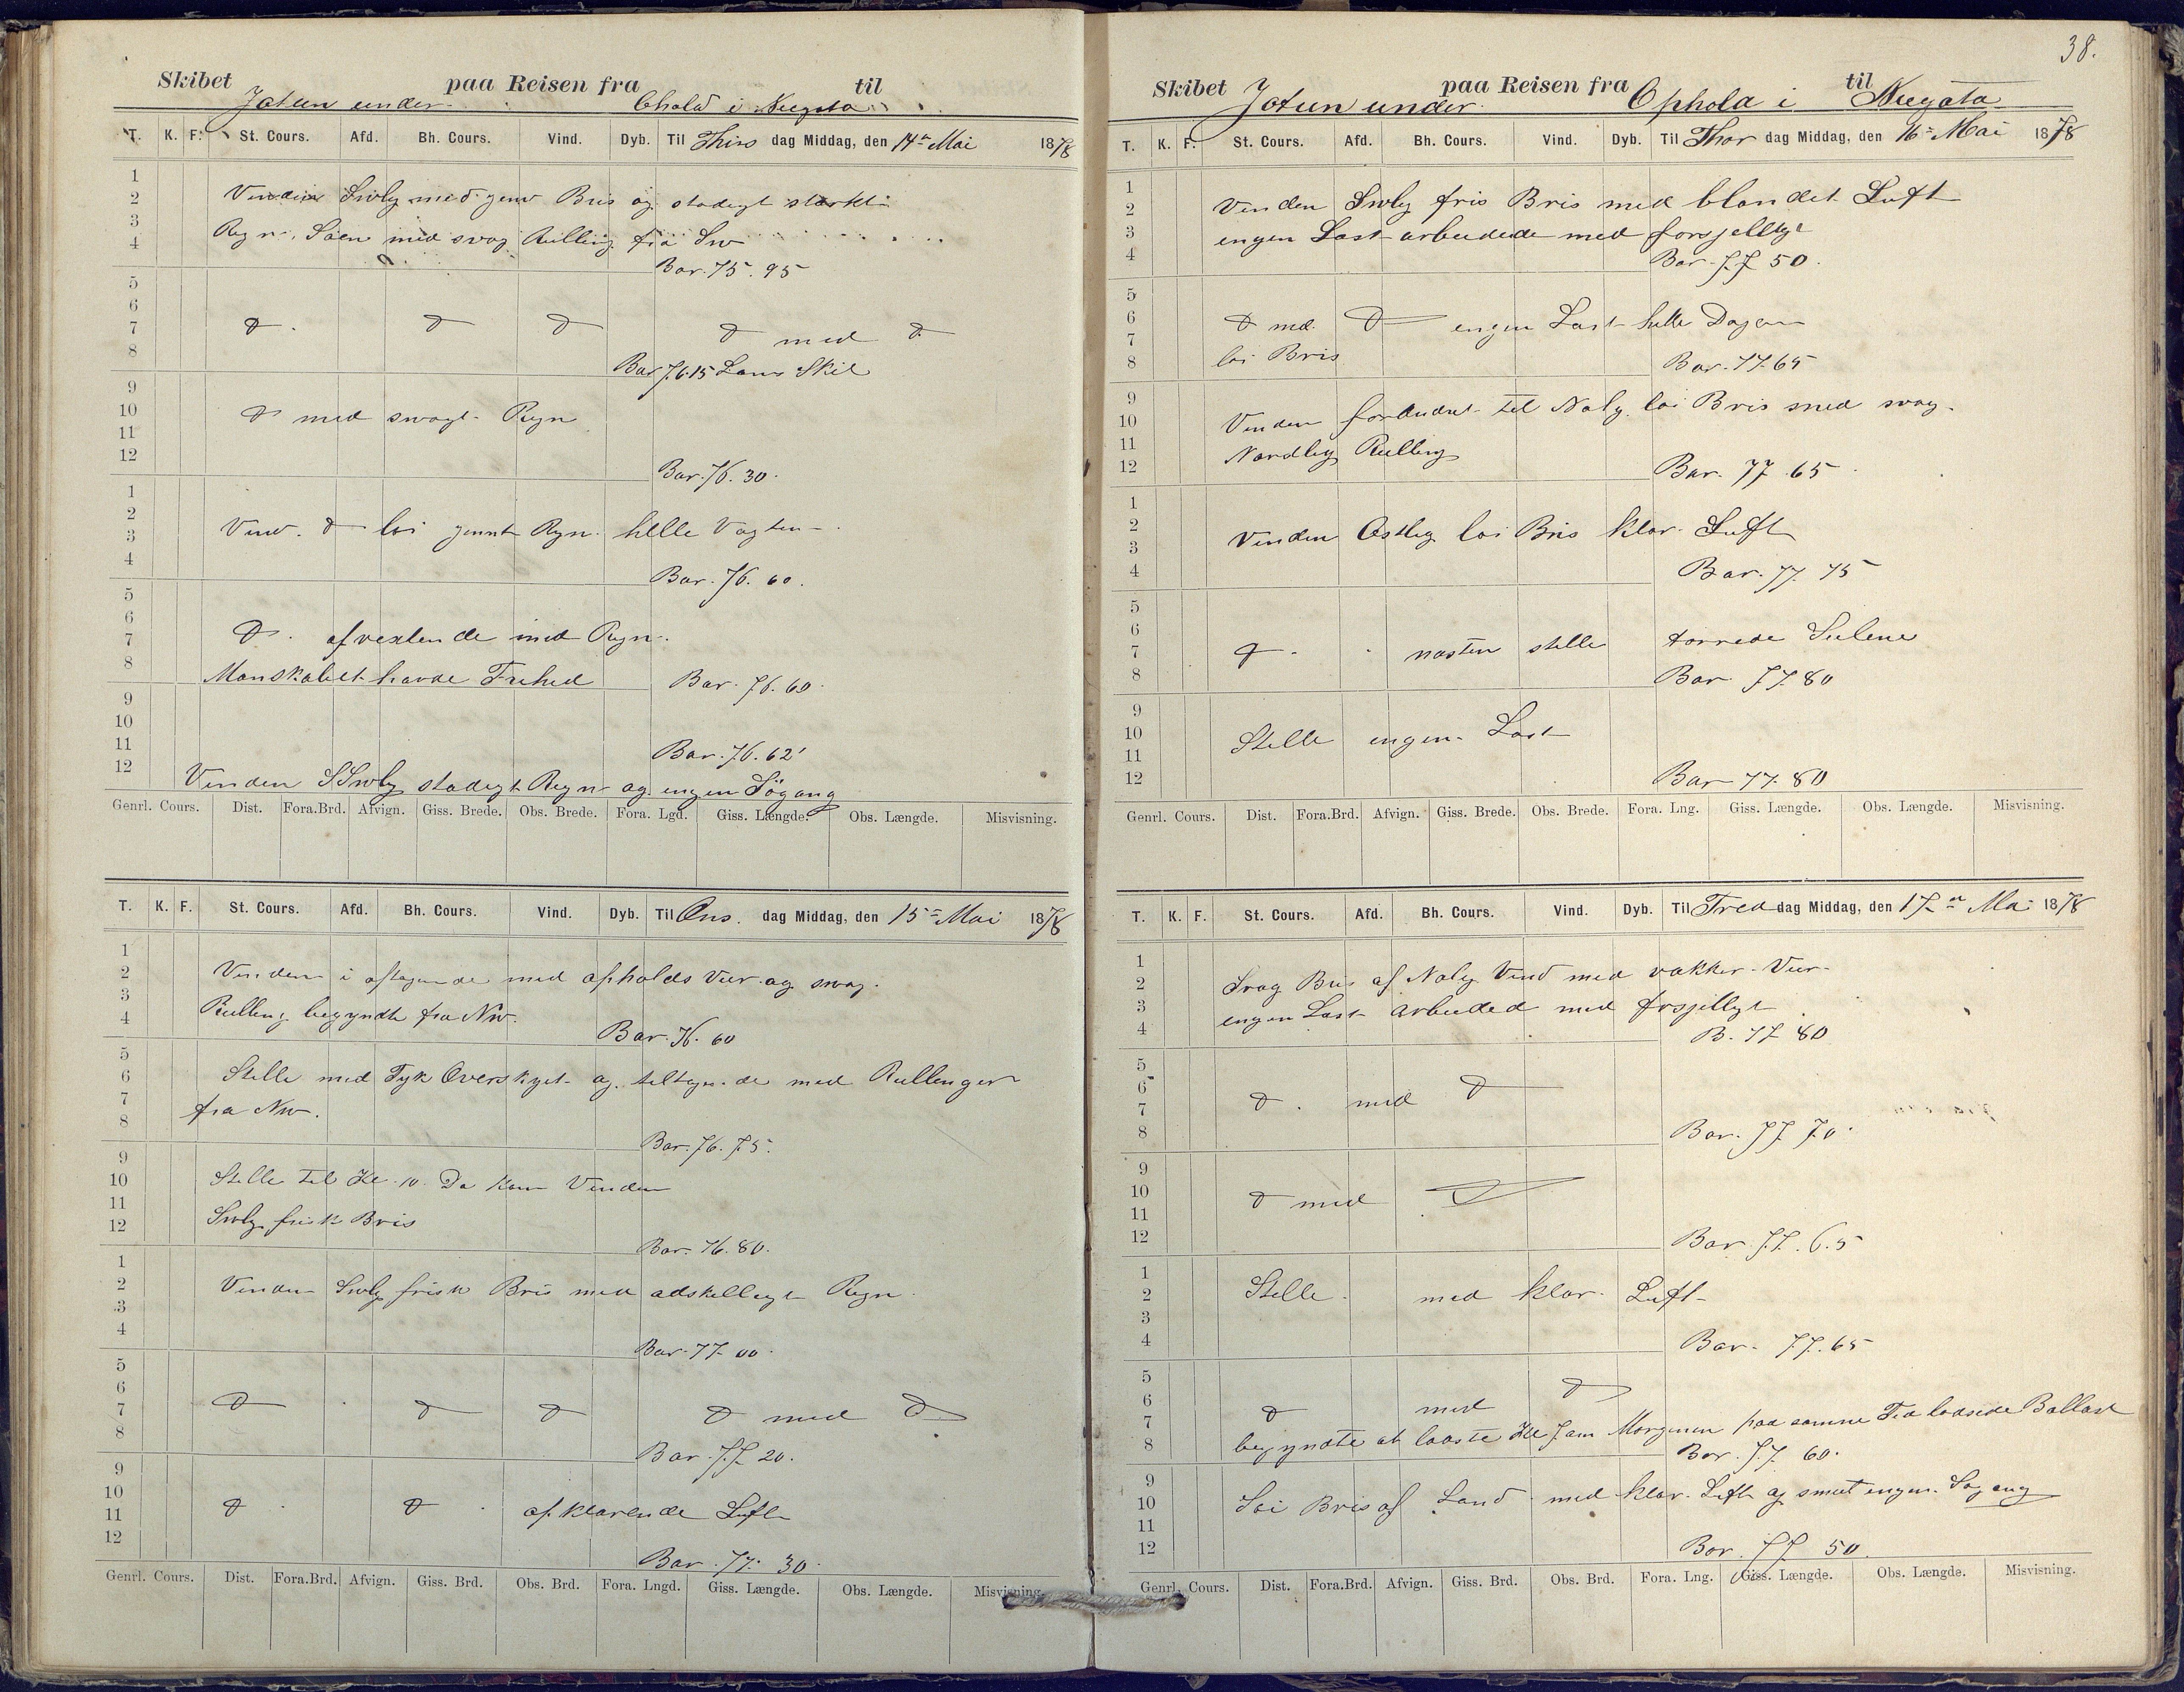 Skibet Jotun under paa Reisen fra Ophold i Niegata til
T. K. F. St. Cours. Afd. Bh. Cours. Vind. Dyb. Til Thirs dag Middag, den 14de Mai 1878
1
2 Vinden Swlig med jevn Bris og stadigt stærkt
3
4 Regn. Søen med svag Rulling fra Sw
Bar. 75.95
5
6
7 D. D D D med D
8 Bar 76.15 Lens Skib
9
10 D med svagt Regn
11
12 Bar. 76.30.
1
2 Vind. D løi jevnt Regn helle Vagten
3
4 Bar. 76.60.
5
6
7 D. afvexlende med Regn.
8 Manskabet havde Frihed Bar. 76.60.
9
10
11 Bar. 76.62
12 Vinden SSwlig stadigt Regn og ingen Søgang
Genrl. Cours. Dist. Fora.Brd. Afvign. Giss. Brede. Obs. Brede. Fora. Lgd. Giss. Længde. Obs. Længde. Misvisning.
T. K. F. St. Cours. Afd. Bh. Cours. Vind. Dyb. Til Ons. dag Middag, den 15= Mai 1878
1
2 Vinden i aftagende med opholds Veir og svag.
3
4 Rulling begyndte fra Nw. Bar. 76.60
5
6 Stille med Tyk Overskyet og tiltagende med Rullinger
7 fra Nw.
8 Bar. 76.75.
9
10 Stille til Kl. 10. Da kom Vinden
11
12 Swlig frisk Bris
Bar. 76.80.
1
2 Vinden Swlig frisk Bris med adskilligt Regn.
3
4 Bar. 77.00.
5
6
7 D D D D med D
8 Bar. 77 20.
9
10
11 D D afklarende Luft
12 Bar. 77. 30.
Genrl. Cours. Dist. Fora.Brd. Afvign. Giss. Brd. Obs. Brd. Fora. Lngd. Giss. Længde. Obs. Længde. Misvisning.
38.
Skibet Jotun under paa Reisen fra Ophold i til Niegata
T. K. F. St. Cours. Afd. Bh. Cours. Vind. Dyb. Til Thor dag Middag, den 16= Mai 1878
1
2 Vinden Swlig fris Bris med blandet Luft
3 engen Last arbeidede med forsjelligt
4 Bar. 77 50.
5
6 D med D engen Last helle Dagen
7
8 løi Bris Bar. 77.65
9
10 Vinden forandret til Nolig. løi Bris med svag.
11 Nordlig Rulling
12 Bar. 77 65
1
2
3 Vinden Østlig løi Bris klar Luft
4 Bar. 77. 75
5
6
7 D. næsten stille tørrede Seilene
8 Bar 77.80
9
10 Stille engen Last
11
12 Bar 77.80
Genrl. Cours. Dist. Fora.Brd. Afvign. Giss. Brede. Obs. Brede. Fora. Lng. Giss. Længde. Obs. Længde. Misvisning.
T. K. F. St. Cours. Afd. Bh. Cours. Vind. Dyb. Til Fred dag Middag, den 17de Mai 1878
1
2 Svag Bris af Nolig Vind med vakker Veir
3 engen Last arbeided med forsjelligt
4 B. 77 80
5
6
7 D. med D
8 Bar. 77 70.
9
10 D med D
11
12 Bar. 77. 65
1
2 Stille. med klar. Luft
3
4 Bar. 77.65
5
6 D med D
7
8 begyndte at lodste Kl 7 am Morgenen paa samme Tid lodsede Ballast
Bar. 77 60.
9
10 Løi Bris af Land med klar Luft og smut engen Søgang
11
12 Bar. 77 50.
Genrl. Cours. Dist. Fora.Brd. Afvign. Giss. Brd. Obs. Brd. Fora. Lng. Giss. Længde. Obs. Længde. Misvisning.